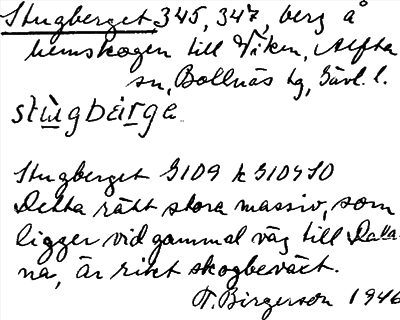 Stugberget 345, 347, berg å
hemskogen till Viken, Alfta
sn, Bollnäs tg, Gävl. l.
stùgbärge
Stugberget G109 k G1094SO
Detta rätt stora massiv, som
ligger vid gammal väg till Dala-
na, är rikt skogbeväxt.
F. Birgerson 1946